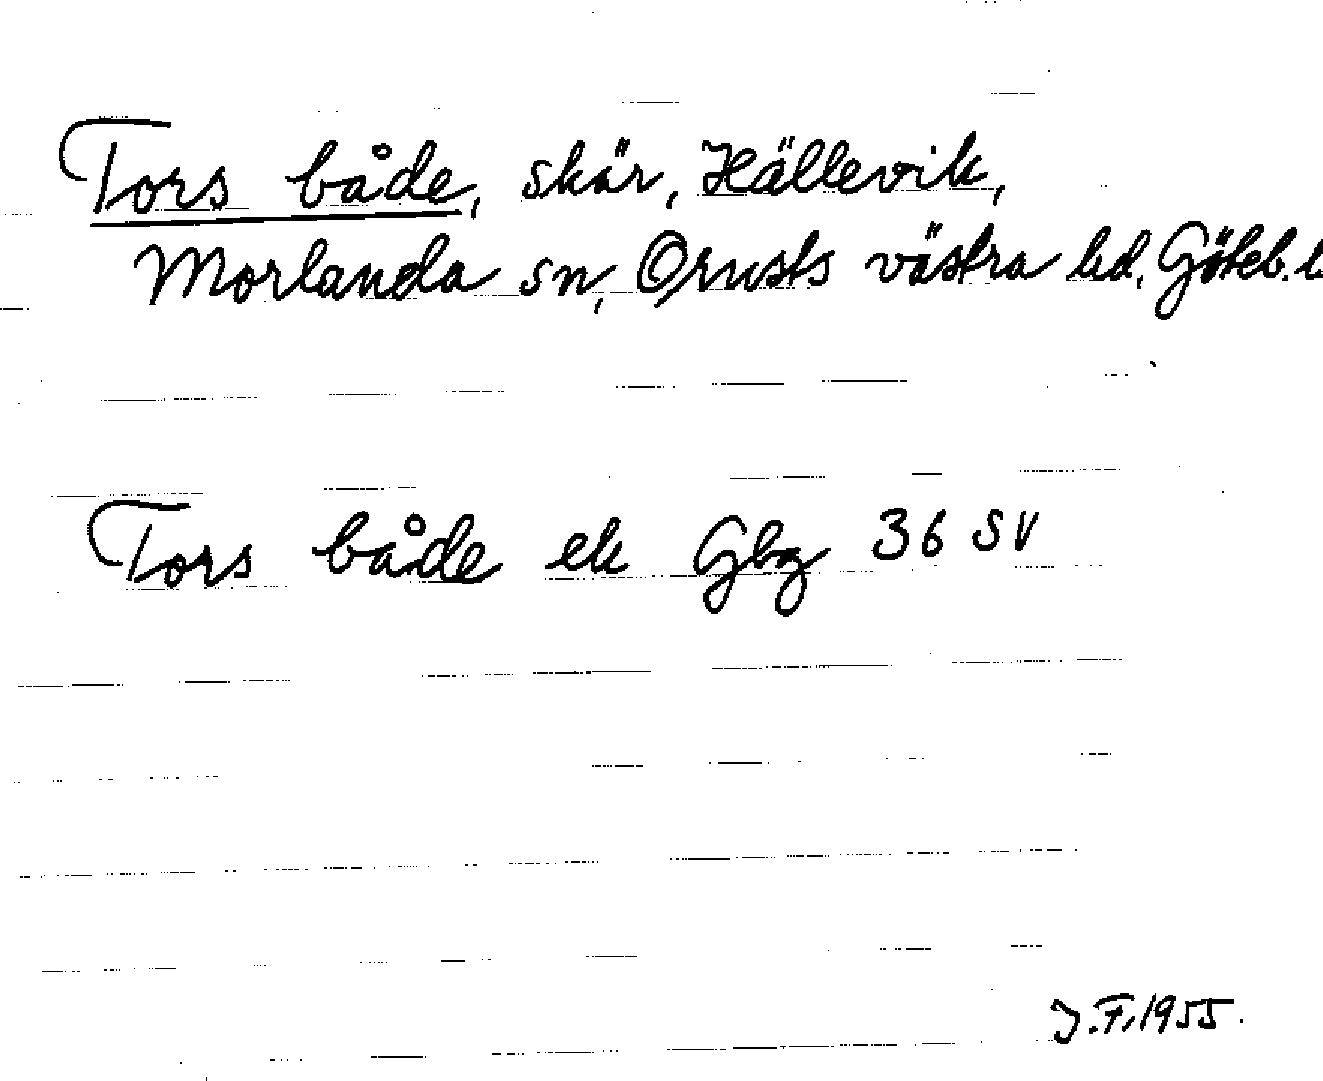 Tors både, skär, Hällevik,
Morlanda sn, Orusts västra hd, Göteb. l
Tors både ek Gbg 36 SV
J.F. 1955.